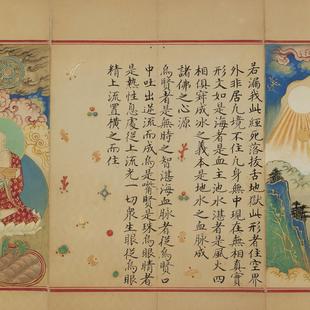 若漏我此經死落拔舌地獄此形者住空界
外非居凡境不住凡身無中現在無相真實
形文如是海者是血主池水湛者是風火四
相俱寂成冰之義本是地水之血脈成
諸佛之心源
烏賢者是無時之智湛海血脈者從烏賢口
中吐出逆流而成烏是觜賢是珠烏眼睛者
是熱性息處從上流光一切衆生眼從烏眼
精上流置橫之而住